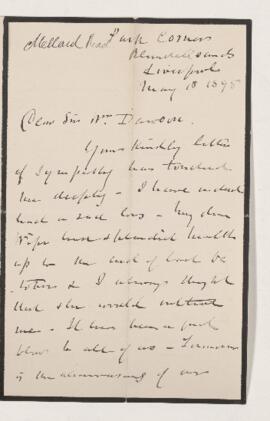 Mellard Read Park Corner
Blundellsands
Liverpool
May 18 1895
Dear Sir Wm Dawson.
Your kindly letter
of sympathy has touched
me deeply - I have indeed
had a sad loss - My dear
Wife had splendid health
up to the end of last
October & I always thought
that she would outlive
me - It has been a
blow to all of us -
is the of our